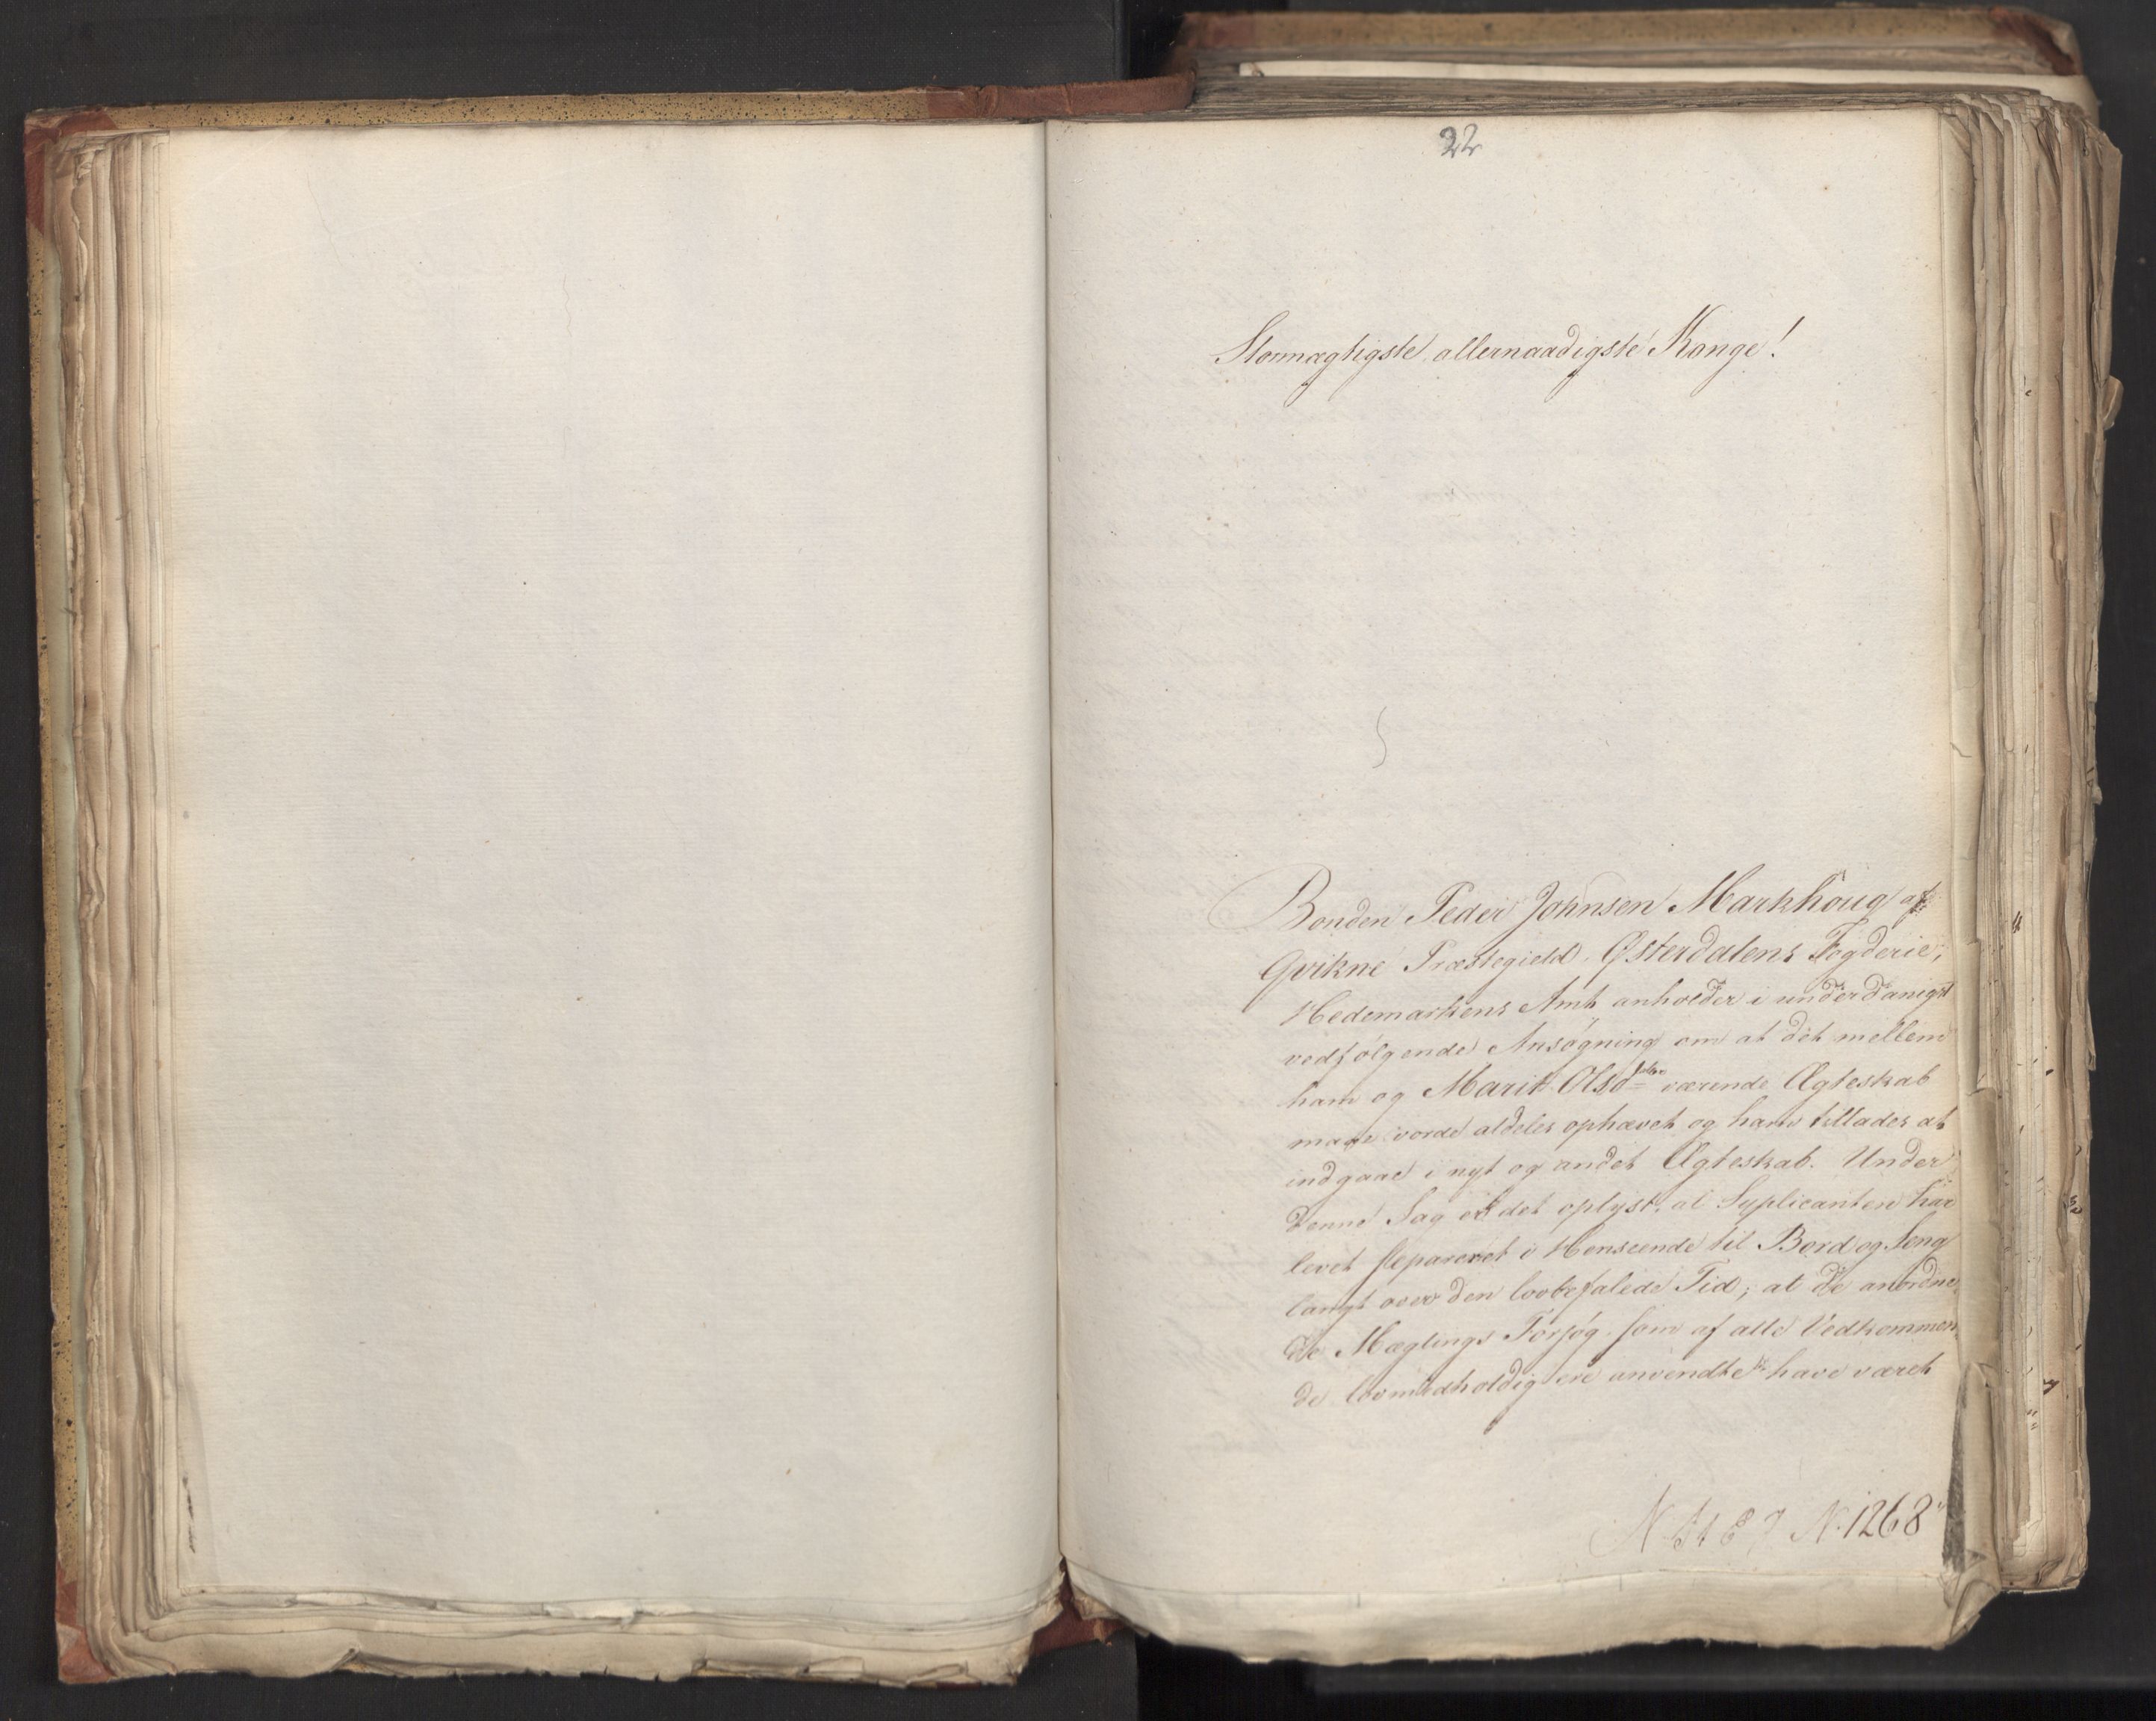 22
Stormægtigste allernaadigste Konge!
Bonden Peder Johnsen Markhoug af
Qvikne Præstegield, Østerdalens Fogderie,
Hedemarkens Amt anholder i underdanigst
vedfølgende Ansøgning om at det mellem
ham og Marit Olsd værende Ægteskab
maae vorde aldeles ophævet og ham tillades at
indgaae i nyt og andet Ægteskab. Under
denne Sag er det oplyst, at Supplicanten har
levet separeret i Henseende til Bord og Seng
langt over den lovbefalede Tid; at de anordne
de Mæglings Forsøg som af alle Vedkommen
de lovmedholdig ere anvendte have været
N. 1268